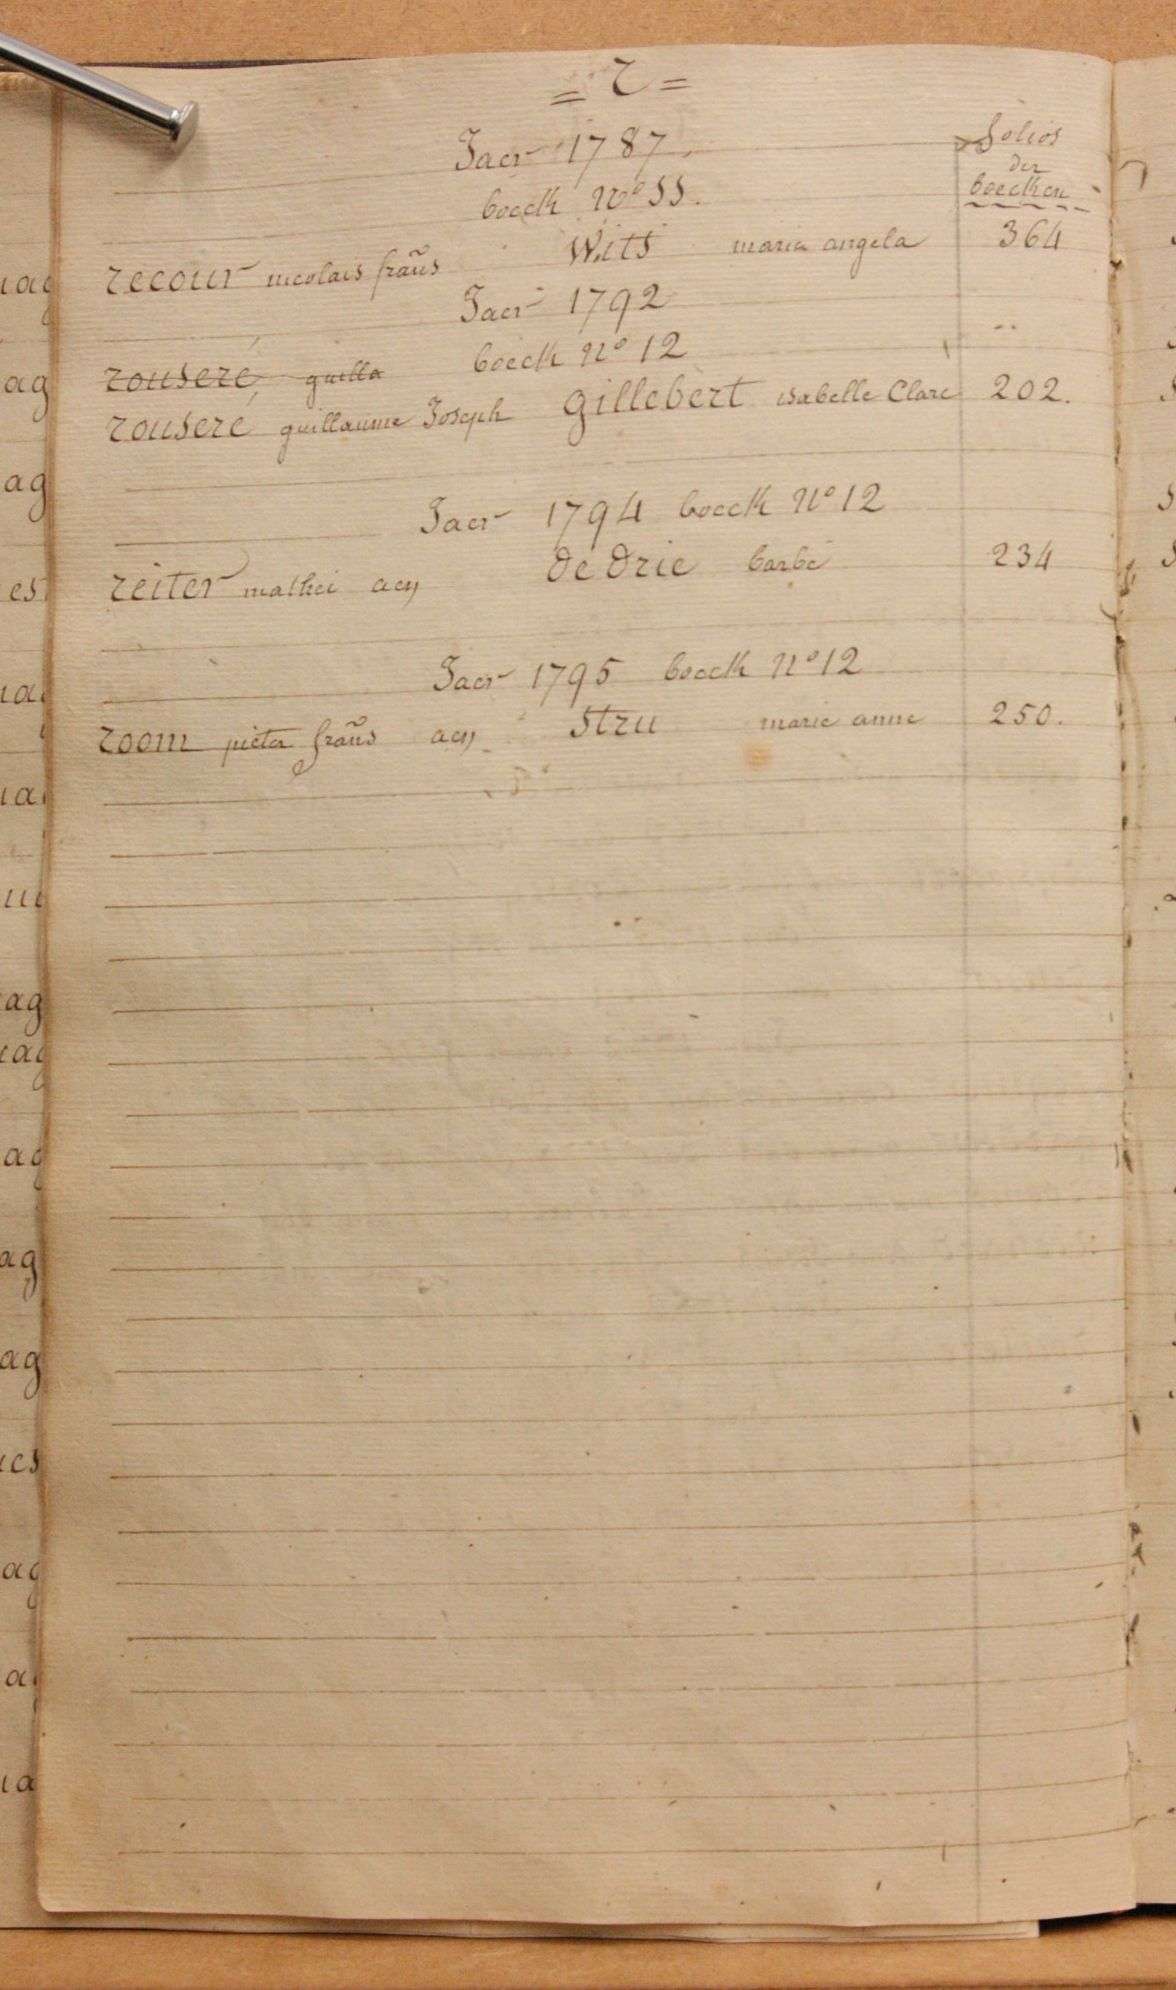 = r =
Jaer 1787
folios
der
boecken
boeck No 11.
recour nicolais frans Wits maria angela 364
Jaer 1792
boeck No 12
rouseré guilla
rouseré guillaume Joseph gillebert isabelle Clare 202.
Jaer 1794 boeck No 12
reiter mathei acy de drie barbe 234
Jaer 1795 boeck No 12
room pieter frans acy Stru marie anne 250.